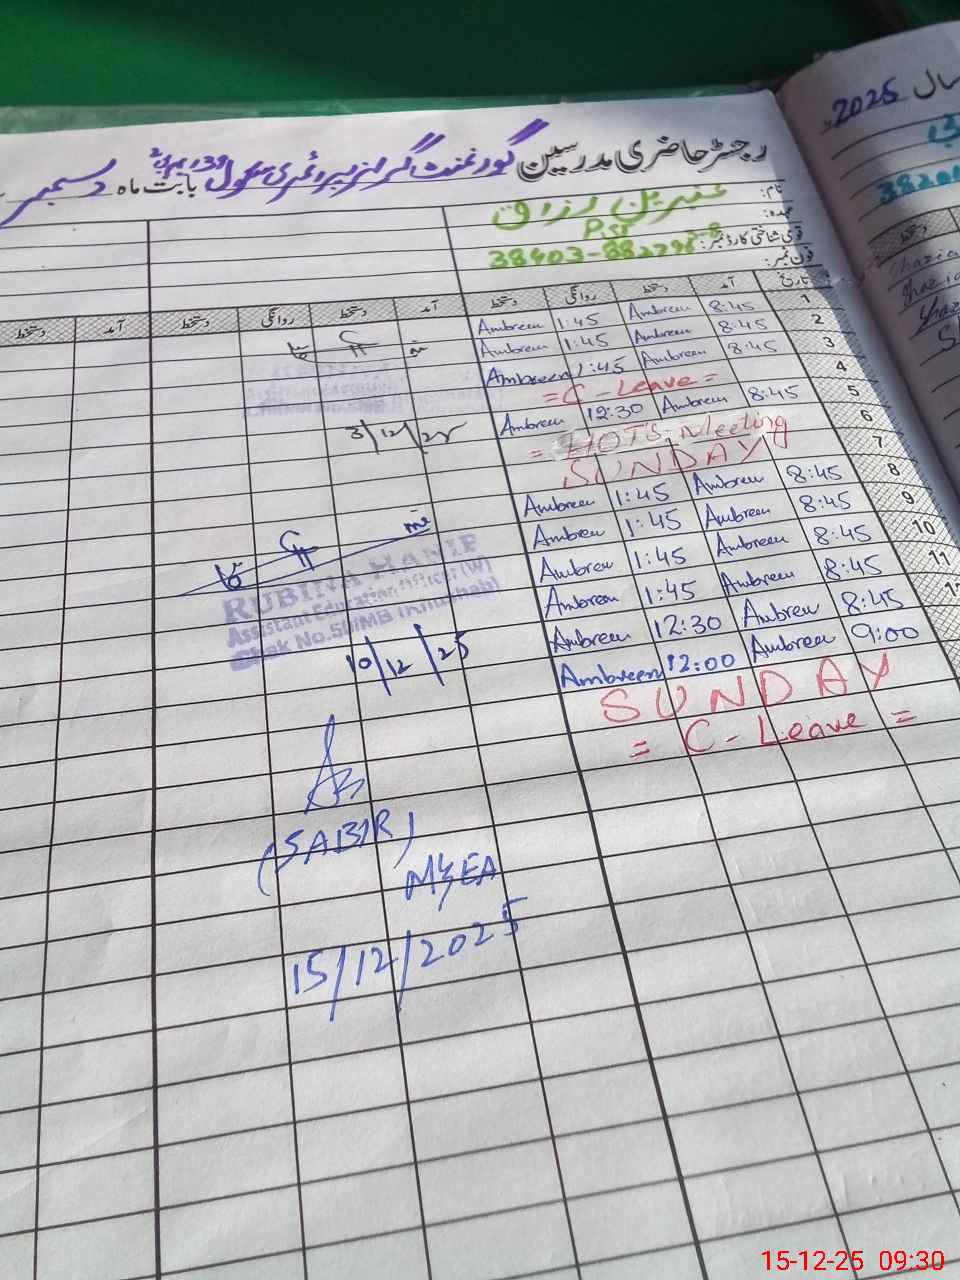 رجسٹر حاضری مدرسین گورنمنٹ گرلز پرائمری سکول 39 ایم بی بابت ماہ دسمبر
سال 2025ء
نام: عنبرین رزاق
عہدہ: PST
قومی شناختی کارڈ نمبر: 38403-8827
فون نمبر:
تاریخ آمد دستخط روانگی دستخط آمد دستخط روانگی دستخط آمد دستخط
1 8:45 Ambreen 1:45 Ambreen
2 8:45 Ambreen 1:45 Ambreen
3 8:45 Ambreen 1:45 Ambreen
4 = C - Leave =
5 8:45 Ambreen 12:30 Ambreen
6 = HOT'S Meeting
7 SUNDAY
8 8:45 Ambreen 1:45 Ambreen
9 8:45 Ambreen 1:45 Ambreen
10 8:45 Ambreen 1:45 Ambreen
11 8:45 Ambreen 1:45 Ambreen
8:45 Ambreen 12:30 Ambreen
9:00 Ambreen 12:00 Ambreen
SUNDAY
= C - Leave =
3/12/25
RUBINA HANIF
Assistant Education Officer (W)
Chak No.50/MB (Khushab)
10/12/25
(SABIR)
MEA
15/12/2025
15-12-25 09:30